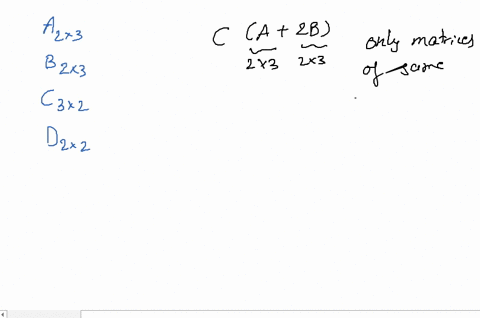 A2×3
B2×3
C3×2
D2×2
C (A + 2B)
2×3 2×3
only matrices
of same